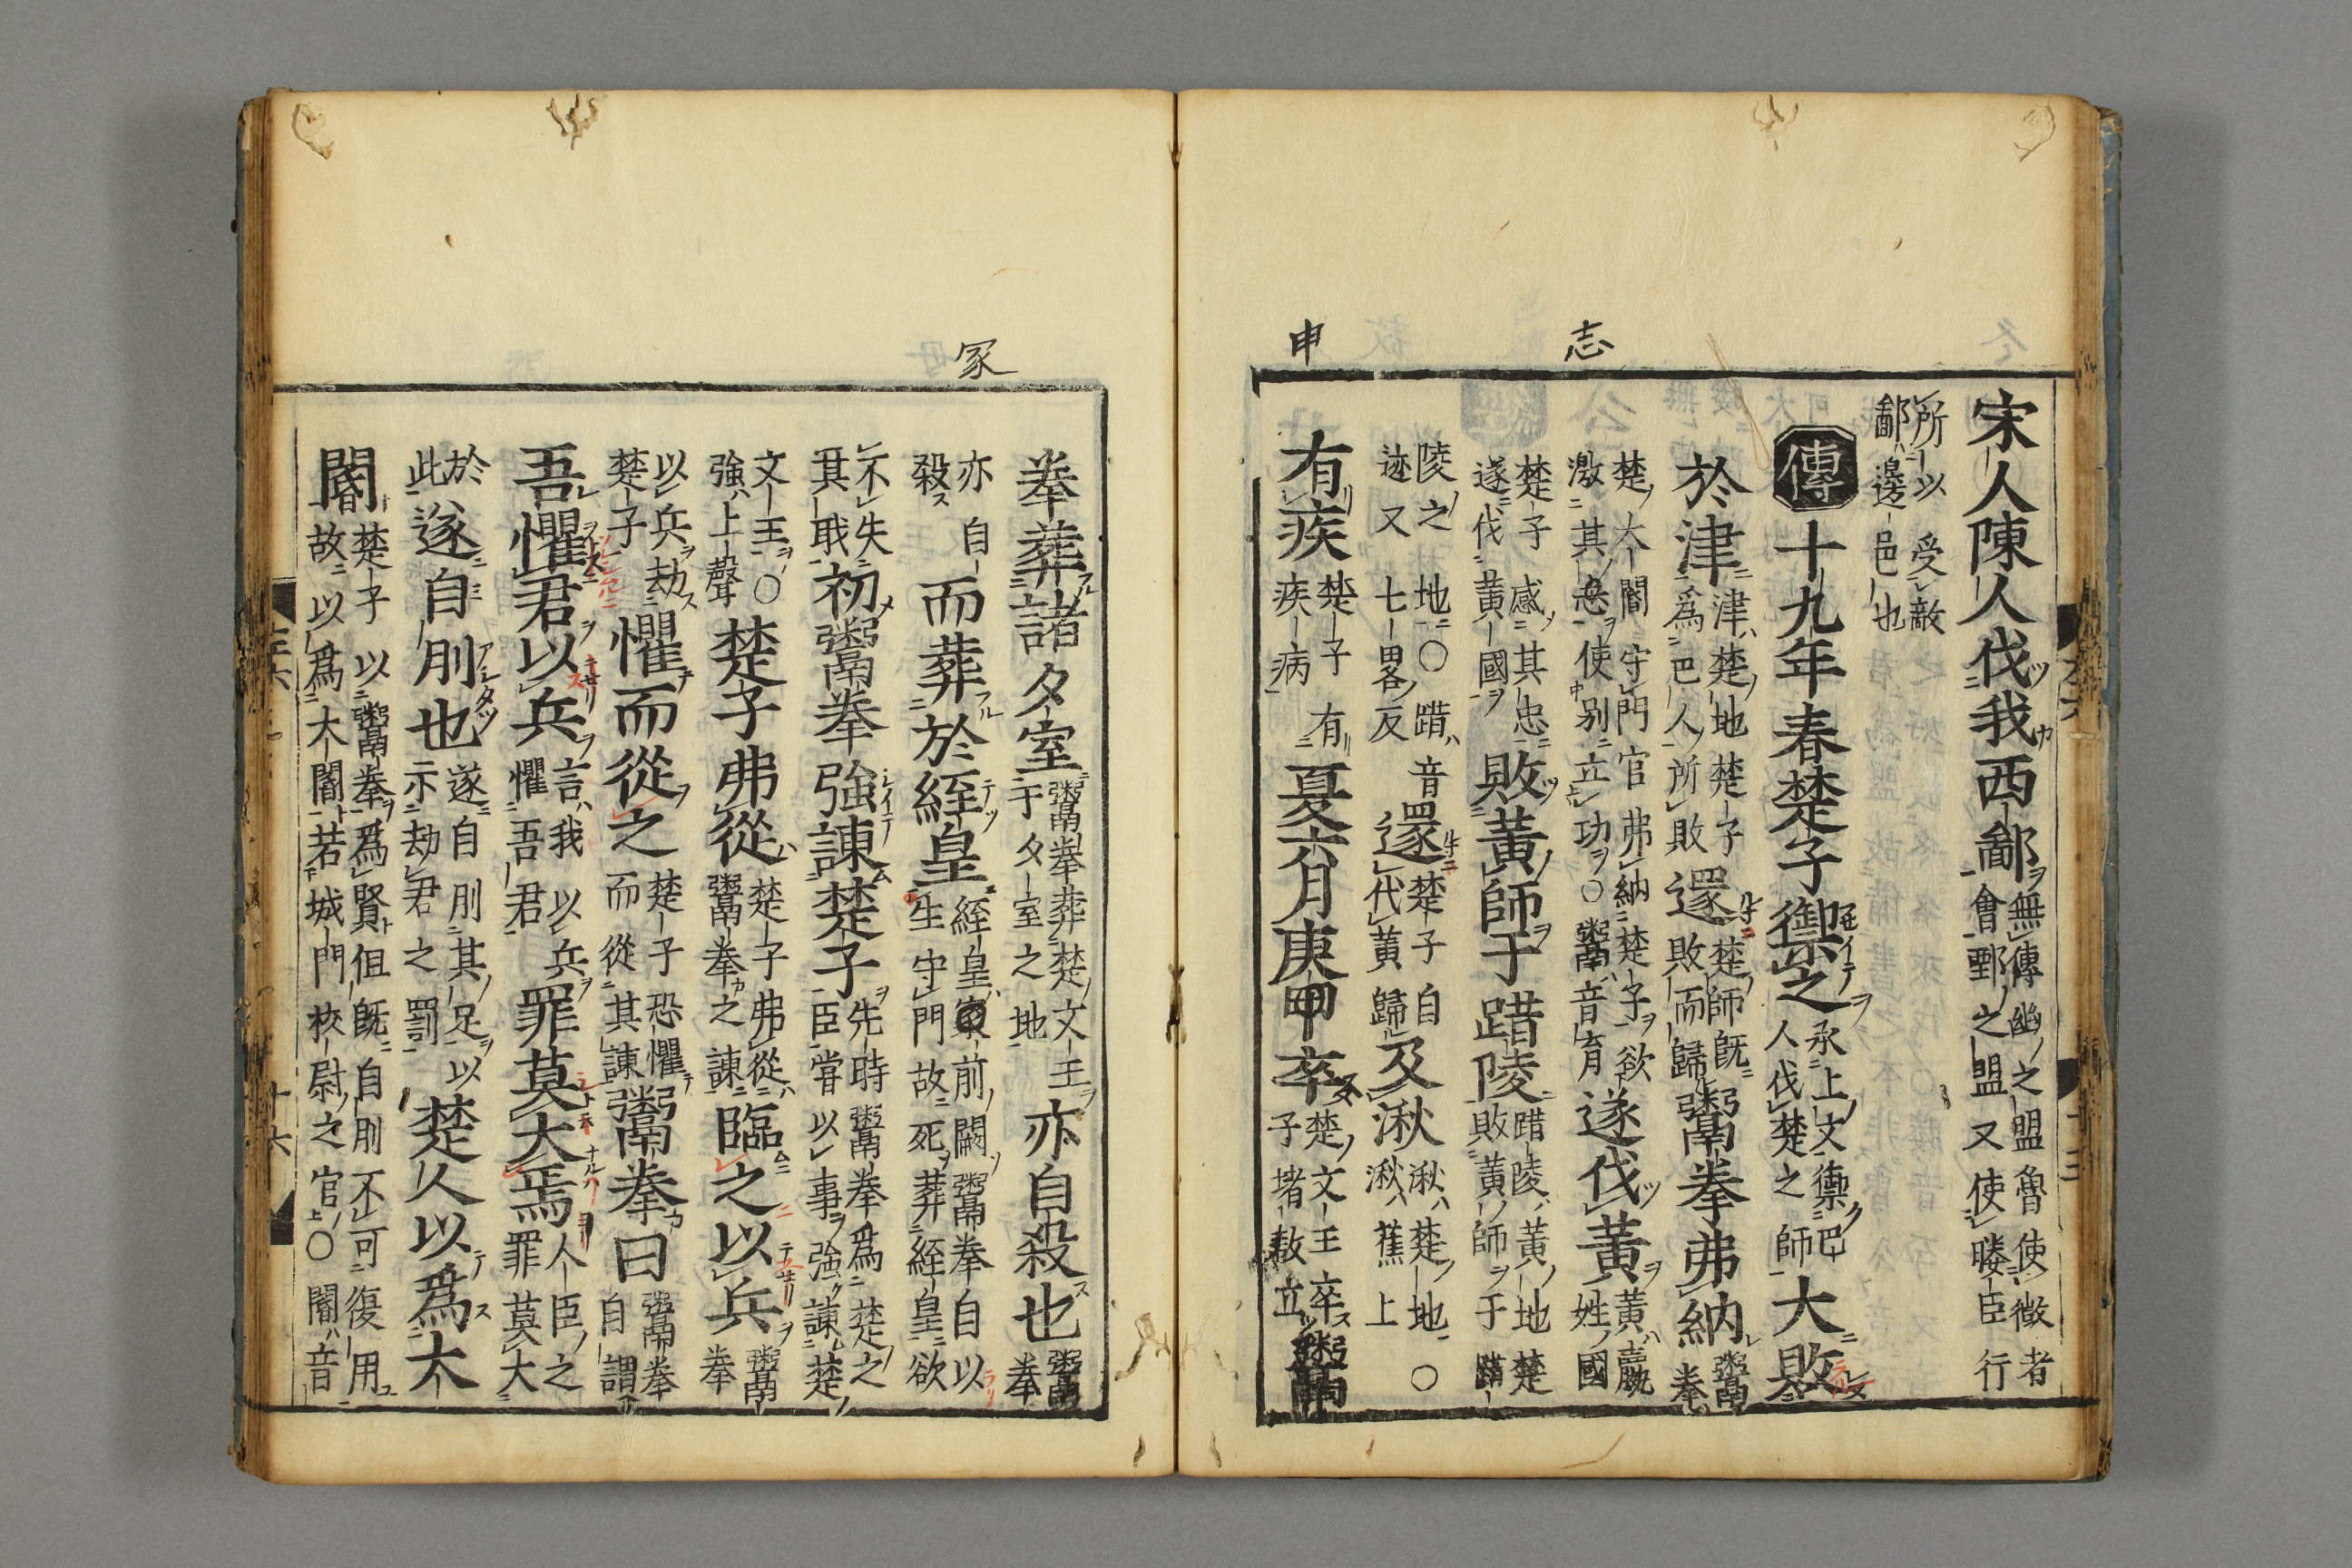 宋人陳人伐我西鄙無傳幽之盟魯使微者會鄄之盟又使媵臣行
所以受敵鄙邊邑也
傳十九年春楚子禦之承上文禦巴人伐楚之師大敗
於津津楚地楚子為巴人所敗還楚師既敗而歸鬻拳弗納鬻拳
楚大閽守門官弗納楚子欲激其忿使別立功○鬻音育遂伐黃黃嬴姓國
楚子感其忠遂伐黃國敗黃師于踖陵踖陵黃地楚敗黃師于踖
陵之地○踖音迹又七畧反還楚子自伐黃歸及湫湫楚地○湫蕉上
有疾楚子有疾病夏六月庚申卒楚文王卒子堵敖立鬻
拳葬諸夕室鬻拳葬楚文王于夕室之地亦自殺也鬻拳
亦自殺而葬於絰皇絰皇冢前闕鬻拳自以生守門故死葬絰皇欲
不失其職初鬻拳強諫楚子先時鬻拳為楚之臣嘗以事強諫楚
文王○強上聲楚子弗從楚子弗從鬻拳之諫臨之以兵鬻拳
以兵劫楚子懼而從之楚子恐懼而從其諫鬻拳曰鬻拳自謂
吾懼君以兵言我以兵懼吾君罪莫大焉人臣之罪莫大
於此遂自刖也遂自刖其足以示劫君之罰楚人以為大
閽楚子以鬻拳為賢但既自刖不可復用故以為大閽若城門校尉之官○閽音
志
申
冢